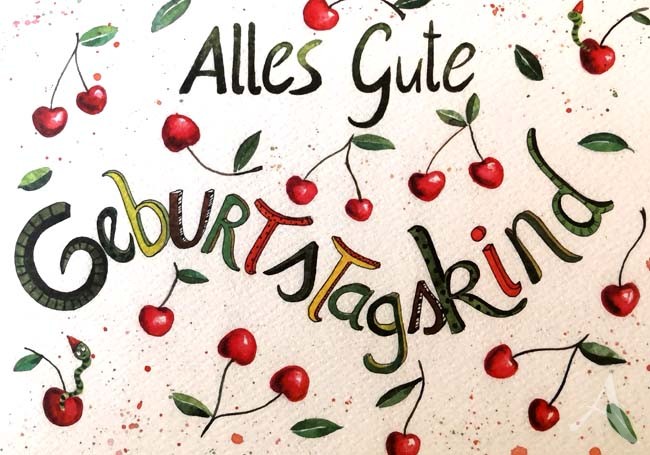 Alles Gute
Geburtstagskind
A